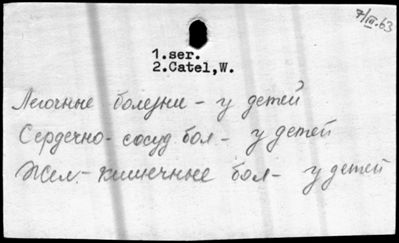 7/III.63
1.ser.
2.Catel,W.
Легочные болезни - у детей
Сердечно- сосуд бол - у детей
Жел.- кишечные бол - у детей